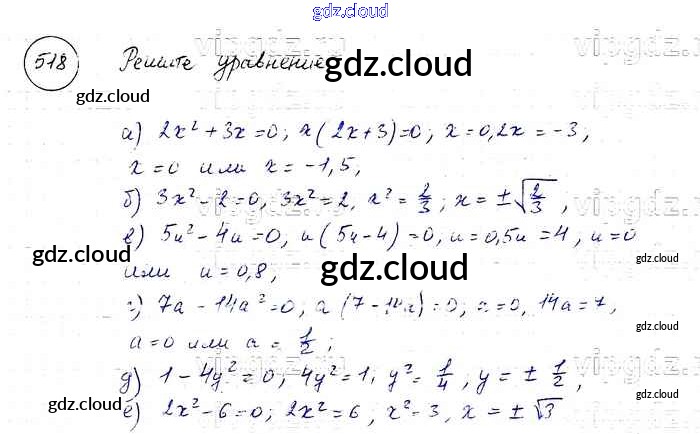 gdz.cloud
518 Решите уравнение
gdz.cloud
gdz.cloud
а) 2x² + 3x = 0; x(2x+3)=0; x = 0, 2x = -3,
x = 0 или x = -1,5;
б) 3x² - 2 = 0, 3x² = 2, x² = 2/3; x = ±√(2/3),
в) 5u² - 4u = 0, u(5u-4) = 0, u = 0, 5u = 4, u = 0
gdz.cloud
или u = 0,8,
gdz.cloud
gdz.cloud
г) 7a - 14a² = 0; a(7-14a) = 0; a = 0, 14a = 7,
gdz.cloud
a = 0 или a = 1/2;
д) 1 - 4y² = 0; 4y² = 1, y² = 1/4, y = ± 1/2,
gdz.cloud
gdz.cloud
е) 2x² - 6 = 0; 2x² = 6, x² - 3, x = ±√3